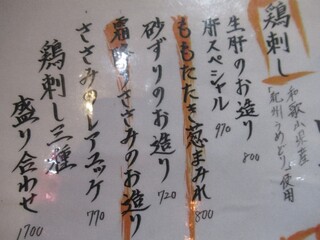 鶏刺し
和歌山県産
「紀州うめどり」使用
生肝のお造り 800
肝スペシャル 970
ももたたき葱まみれ 800
砂ずりのお造り 720
霜降りささみのお造り
ささみのレアユッケ 770
鶏刺し三種
盛り合わせ 1700